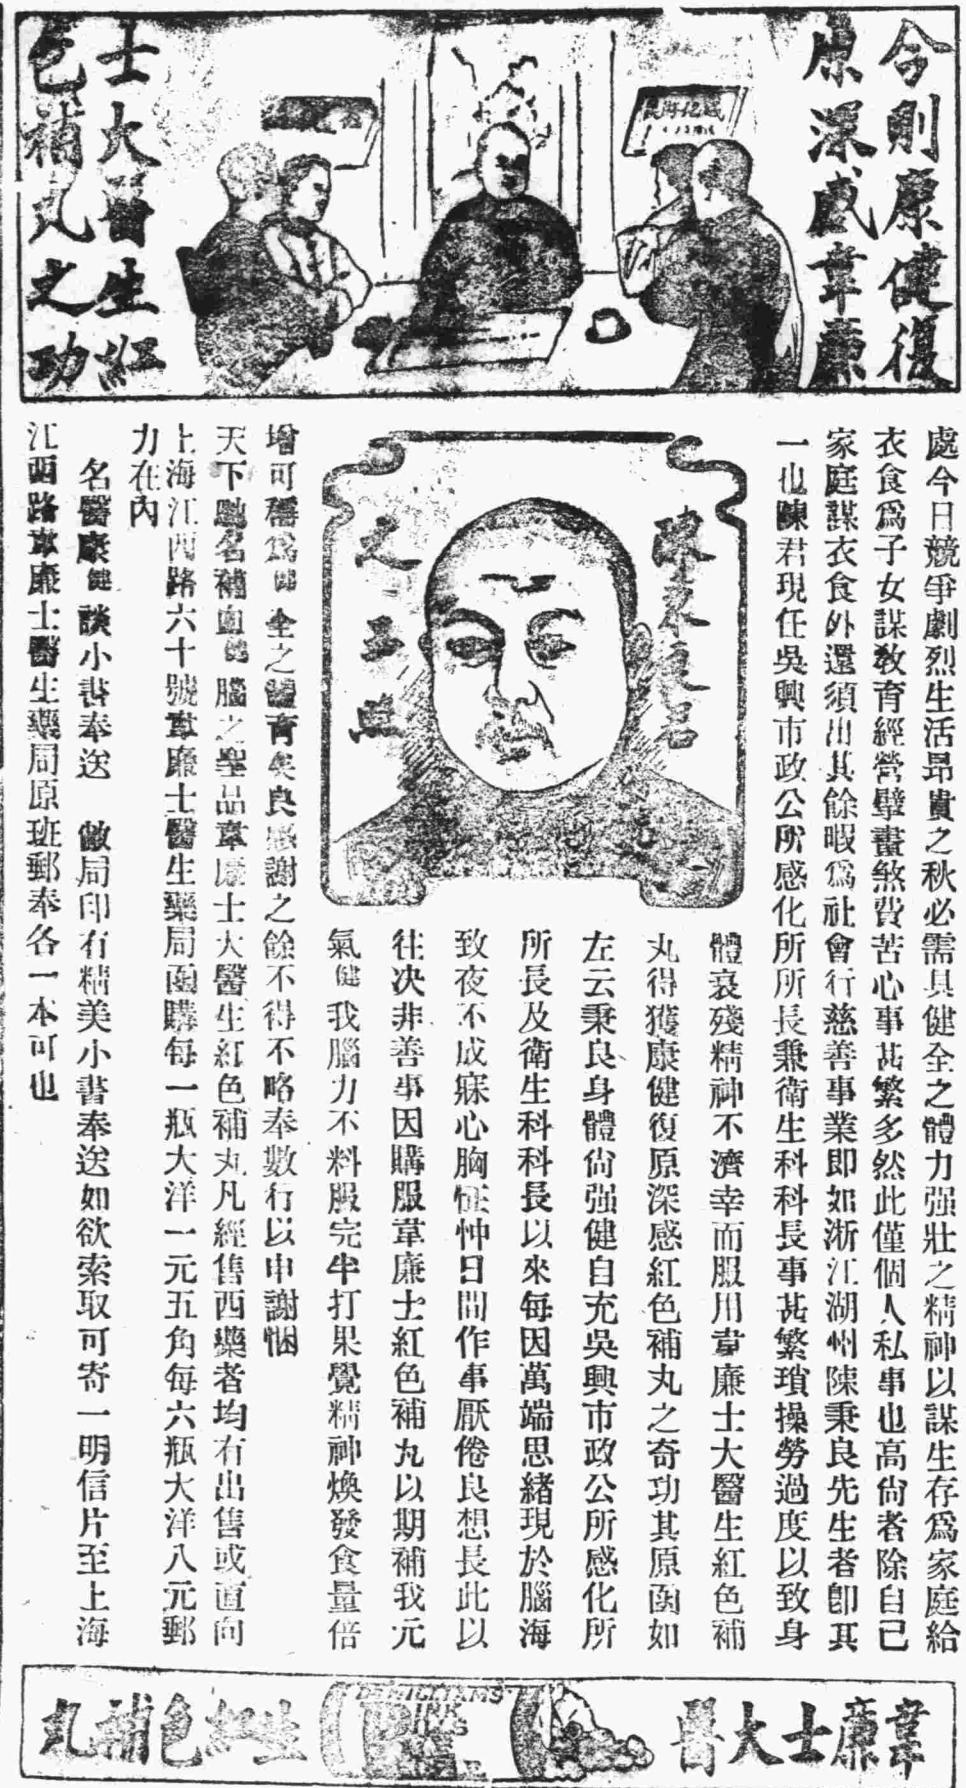 今則康健復
原深感韋廉
士大醫生紅
色補丸之功
感化所
處今日競爭劇烈生活昂貴之秋必需具健全之體力强壯之精神以謀生存爲家庭給
衣食爲子女謀教育經營擘畫煞費苦心事甚繁多然此僅個人私事也高尙者除自己
家庭謀衣食外還須出其餘暇爲社會行慈善事業即如浙江湖州陳秉良先生者卽其
一也陳君現任吳興市政公所感化所所長兼衛生科科長事甚繁瑣操勞過度以致身
體衰殘精神不濟幸而服用韋廉士大醫生紅色補
丸得獲康健復原深感紅色補丸之奇功其原函如
左云秉良身體尙强健自充吳興市政公所感化所
所長及衛生科科長以來每因萬端思緒現於腦海
致夜不成寐心胸怔忡日間作事厭倦良想長此以
往决非善事因購服韋廉士紅色補丸以期補我元
氣健我腦力不料服完半打果覺精神煥發食量倍
增可稱爲健全之體育矣良感謝之餘不得不略奉數行以申謝悃
天下馳名補血健腦之聖品韋廉士大醫生紅色補丸凡經售西藥者均有出售或直向
上海江西路六十號韋廉士醫生藥局函購每一瓶大洋一元五角每六瓶大洋八元郵
力在內
名醫康健談小書奉送 敝局印有精美小書奉送如欲索取可寄一明信片至上海
江西路韋廉士醫生藥局原班郵奉各一本可也
陳秉良君
之玉照
韋廉士大醫
生紅色補丸
DR WILLIAMS
PINK
PILLS